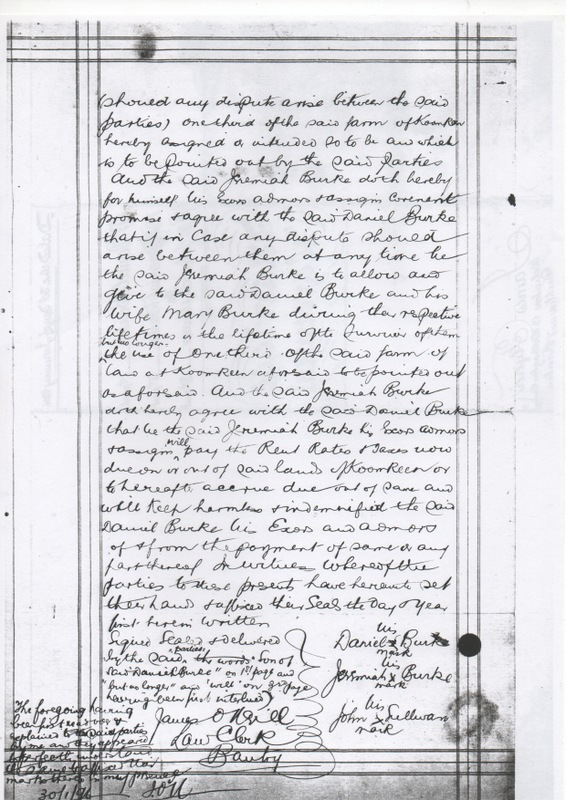 (should any dispute arise between the said
parties) one third of the said farm of Koomkeen
hereby assigned or intended so to be and which
is to be pointed out by the said parties
And the said Jeremiah Burke doth hereby
for himself his Exors admors & assigns covenant
promise & agree with the said Daniel Burke
that if in case any dispute should
arise between them at any time he
the said Jeremiah Burke is to allow and
give to the said Daniel Burke and his
wife Mary Burke during their respective
lifetimes or the lifetime of the survivor of them
but no longer
the use of one third of the said farm of
land at Koomkeen aforsaid to be pointed out
as aforsaid. And the said Jeremiah Burke
doth hereby agree with the said Daniel Burke
that he the said Jeremiah Burke his Exors admors
& assigns will pay the Rent Rates & Taxes now
due on or out of said lands of Koomkeen or
to hereafter accrue due out of same and
will keep harmless & indemnified the said
Daniel Burke his Exors and admors
of & from the payment of same or any
part thereof In witness whereof the
parties to these presents have hereunto set
their hand & affixed their Seals the day & year
first herein written
Signed Sealed & delivered
by the said parties the words "Son of
said Daniel Burke" on 1st page and
"but no longer" and "will" on 3rd page
having been first interlined
James O'Neill
Law Clerk
Bantry
his
Daniel X Burke
mark
his
Jeremiah X Burke
mark
his
John X Sullivan
mark
The foregoing having
been first read over &
explained to the said parties
by me and they appeared
to perfectly understand
the same & affixed their
marks thereto in my presence
30/1/96
JO'N